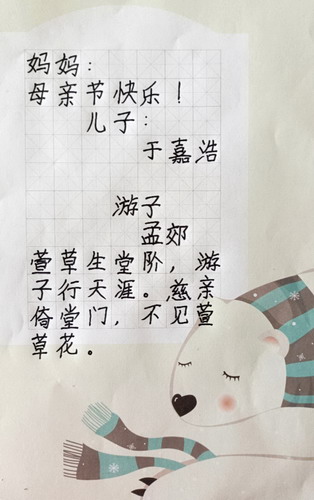 妈妈：
母亲节快乐！
儿子：
于嘉浩
游子
孟郊
萱草生堂阶，游
子行天涯。慈亲
倚堂门，不见萱
草花。